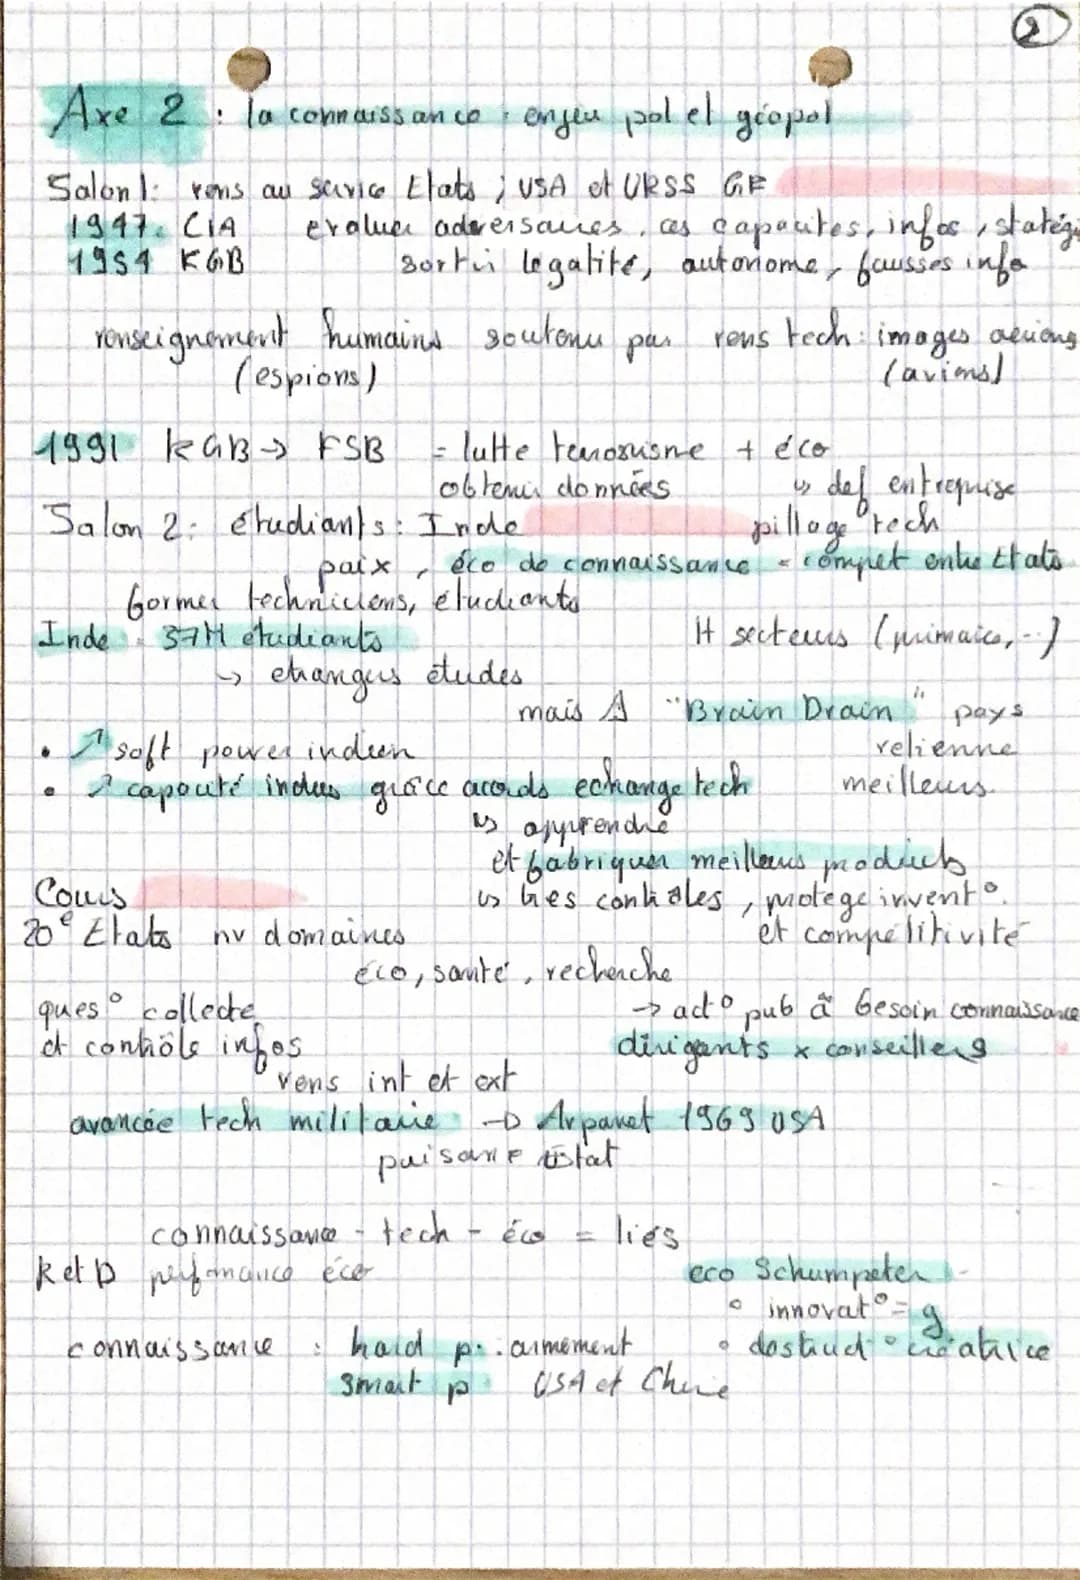 2
Axe 2 : la connaissance : enjeu pol et géopol
Salon 1: rens au service Etats ; USA et URSS GF
1947: CIA evaluer adversaires, ces capacites, infos, statégi
1954 KGB sortir legalité, autonome, fausses info
renseignement humains soutenu par rens tech: images aeriens
(espions) (avions)
1991 KGB → FSB = lutte terrorisme + éco
obtenir données ↳ def entreprise
Salon 2: étudiants: Inde pillage tech
paix, éco de connaissance = compet entre Etats
former techniciens, étudiants
Inde = 37M étudiants H secteurs (primaire, ..)
↳ echanges études
mais "Brain Drain" pays
• ↗ soft power indien retienne
• ↗ capacité indus grâce acords echange tech meilleurs.
↳ apprendre
et fabriquer meilleurs produits
Cours ↳ tres contrôles, protège invent°
20e Etats nv domaines et compétitivité
éco, santé, recherche
ques° collecte → act° pub à besoin connaissance
et contrôle infos dirigants x conseillers
rens int et ext
avancée tech militaire → Arpanet 1969 USA
puisance Etat
connaissance - tech - éco = liés
R et D perfomance éco eco Schumpeter
° innovat° = g
connaissance : hard p. : armement ° destruct° créatrice
smart p USA et Chine